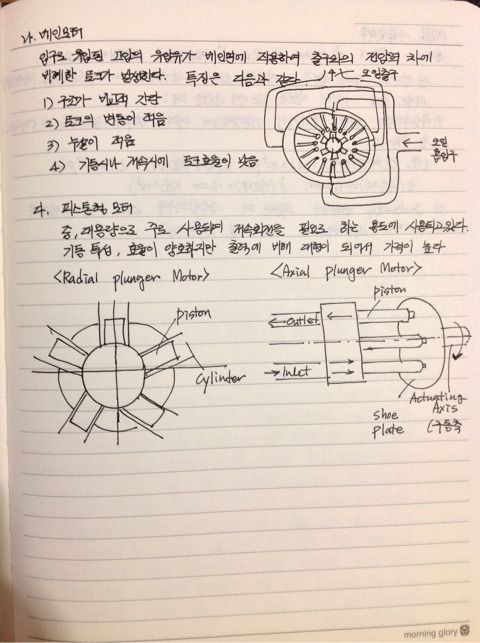 다. 베인모터
입구로 유입된 고압의 유압유가 베인면에 작용하여 출구와의 전압력 차에
비례한 토크가 발생한다. 특징은 다음과 같다.
오일출구
1) 구조가 비교적 간단
2) 토크의 변동이 적음
3) 누설이 적음
4) 기동시나 저속시에 토크효율이 낮음
오일
흡입구
라. 피스톤형 모터
중, 대용량으로 주로 사용되며 저속회전을 필요로 하는 용도에 사용되고 있다.
기동 특성, 효율이 양호하지만 출력에 비해 대형이 되어서 가격이 높다
<Radial plunger Motor> <Axial plunger Motor>
piston
Cylinder
piston
Outlet
Inlet
shoe
plate
Actuating
Axis
(구동축
morning glory